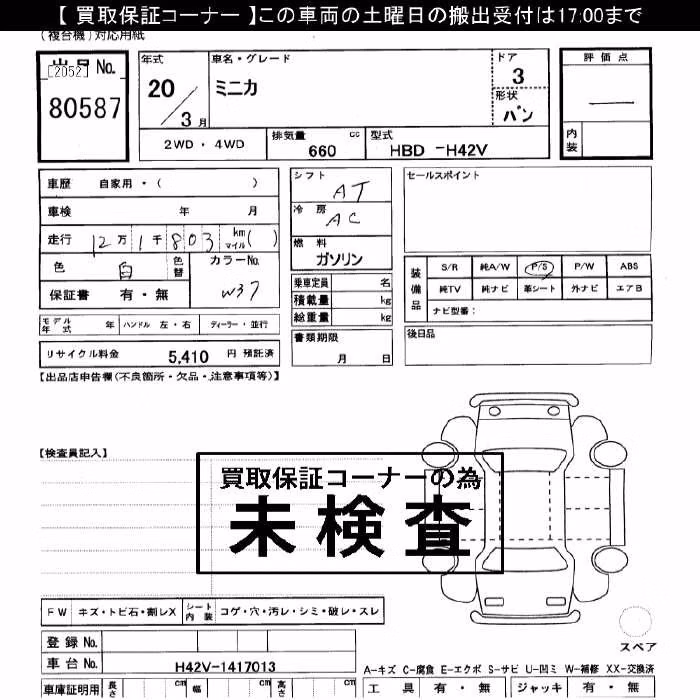 【 買取保証コーナー 】この車両の土曜日の搬出受付は17:00まで
(複合機)対応用紙
出品 No.
[2052]
80587
年式
20／3月
車名・グレード
ミニカ
ドア
3
形状
バン
評価点
—
内装
2WD・4WD
排気量 cc
660
型式
HBD -H42V
車歴 自家用・( )
車検 年 月
走行 12万1千803 km マイル( )
色 白 色替
カラーNo.
W37
保証書 有・無
シフト
AT
冷房
AC
燃料
ガソリン
乗車定員 名
積載量 kg
総重量 kg
セールスポイント
装備品
S/R 純A/W P/S P/W ABS
純TV 純ナビ 革シート 外ナビ エアB
ナビ型番:
モデル年式 年 ハンドル 左・右 ディーラー・並行
書類期限
月 日
後日品
リサイクル料金 5,410 円 預託済
【出品店申告欄(不良箇所・欠品・注意事項等)】
【検査員記入】
買取保証コーナーの為
未検査
FW キズ・トビ石・割レX シート内装 コゲ・穴・汚レ・シミ・破レ・スレ
スペア
登録 No.
車台 No. H42V-1417013
A-キズ C-腐食 E-エクボ S-サビ U-凹ミ W-補修 XX-交換済
車庫証明用 長さ cm 幅 cm 高さ cm
工具 有・無 ジャッキ 有・無